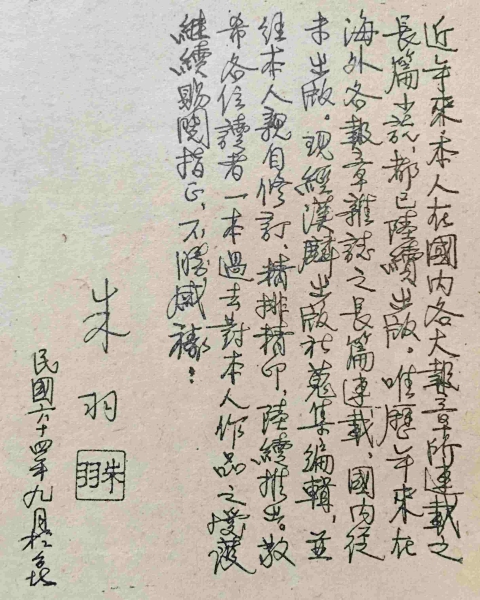 近年來本人在國內各大報章所連載之
長篇小說，都已陸續出版。唯歷年來在
海外各報章雜誌之長篇連載，國內從
未出版。現經漢麟出版社蒐集編輯，並
經本人親自修訂，精排精印，陸續推出。敬
希各位讀者一本過去對本人作品之愛護
繼續賜閱指正，不勝感禱！
朱羽
朱羽
民國六十四年九月於台北